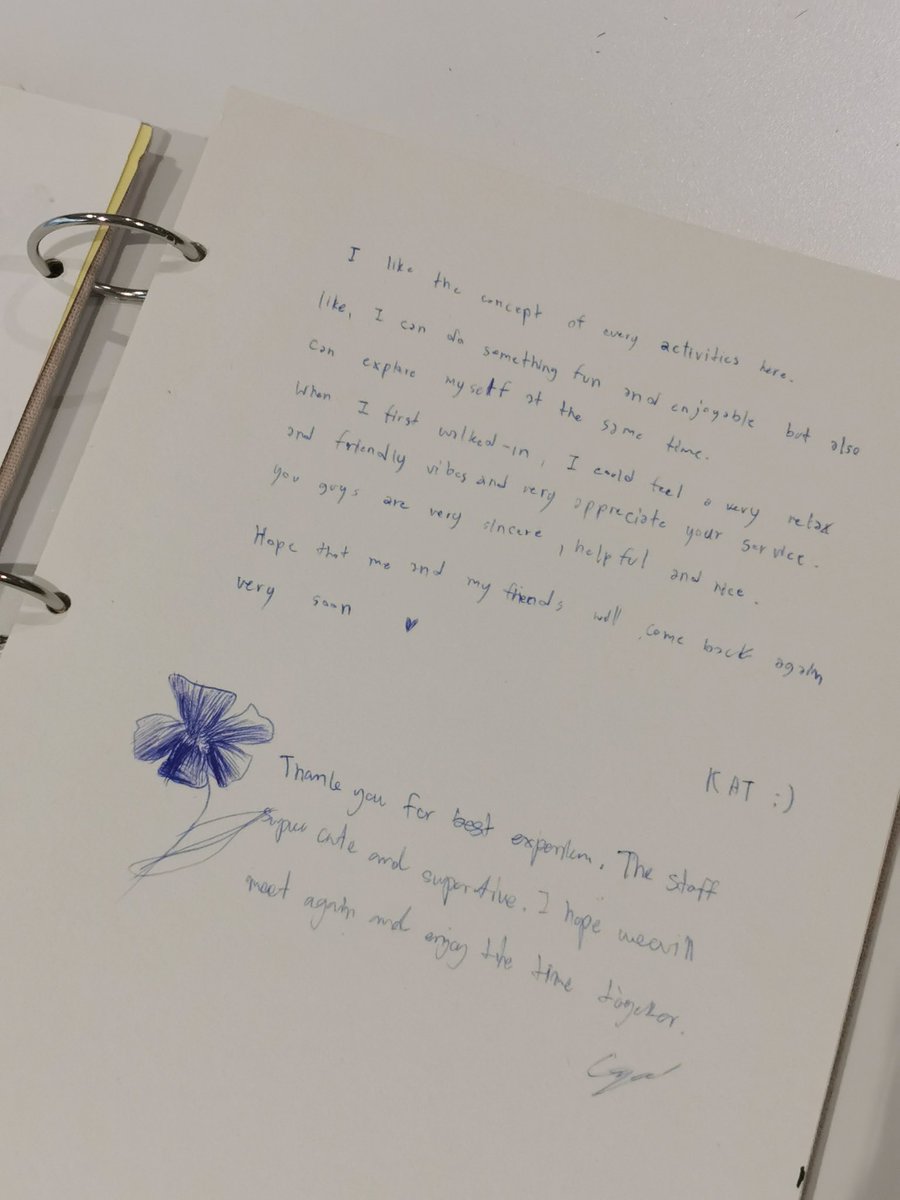 I like the concept of every activities here.
like, I can do something fun and enjoyable but also
can explore myself at the same time.
When I first walked-in, I could feel a very relax
and friendly vibes and very appreciate your service.
you guys are very sincere, helpful and nice.
Hope that me and my friends will come back again
very soon ♥
KAT :)
Thank you for best The staff
super cute and suportive. I hope we will
meet again and enjoy the time together.